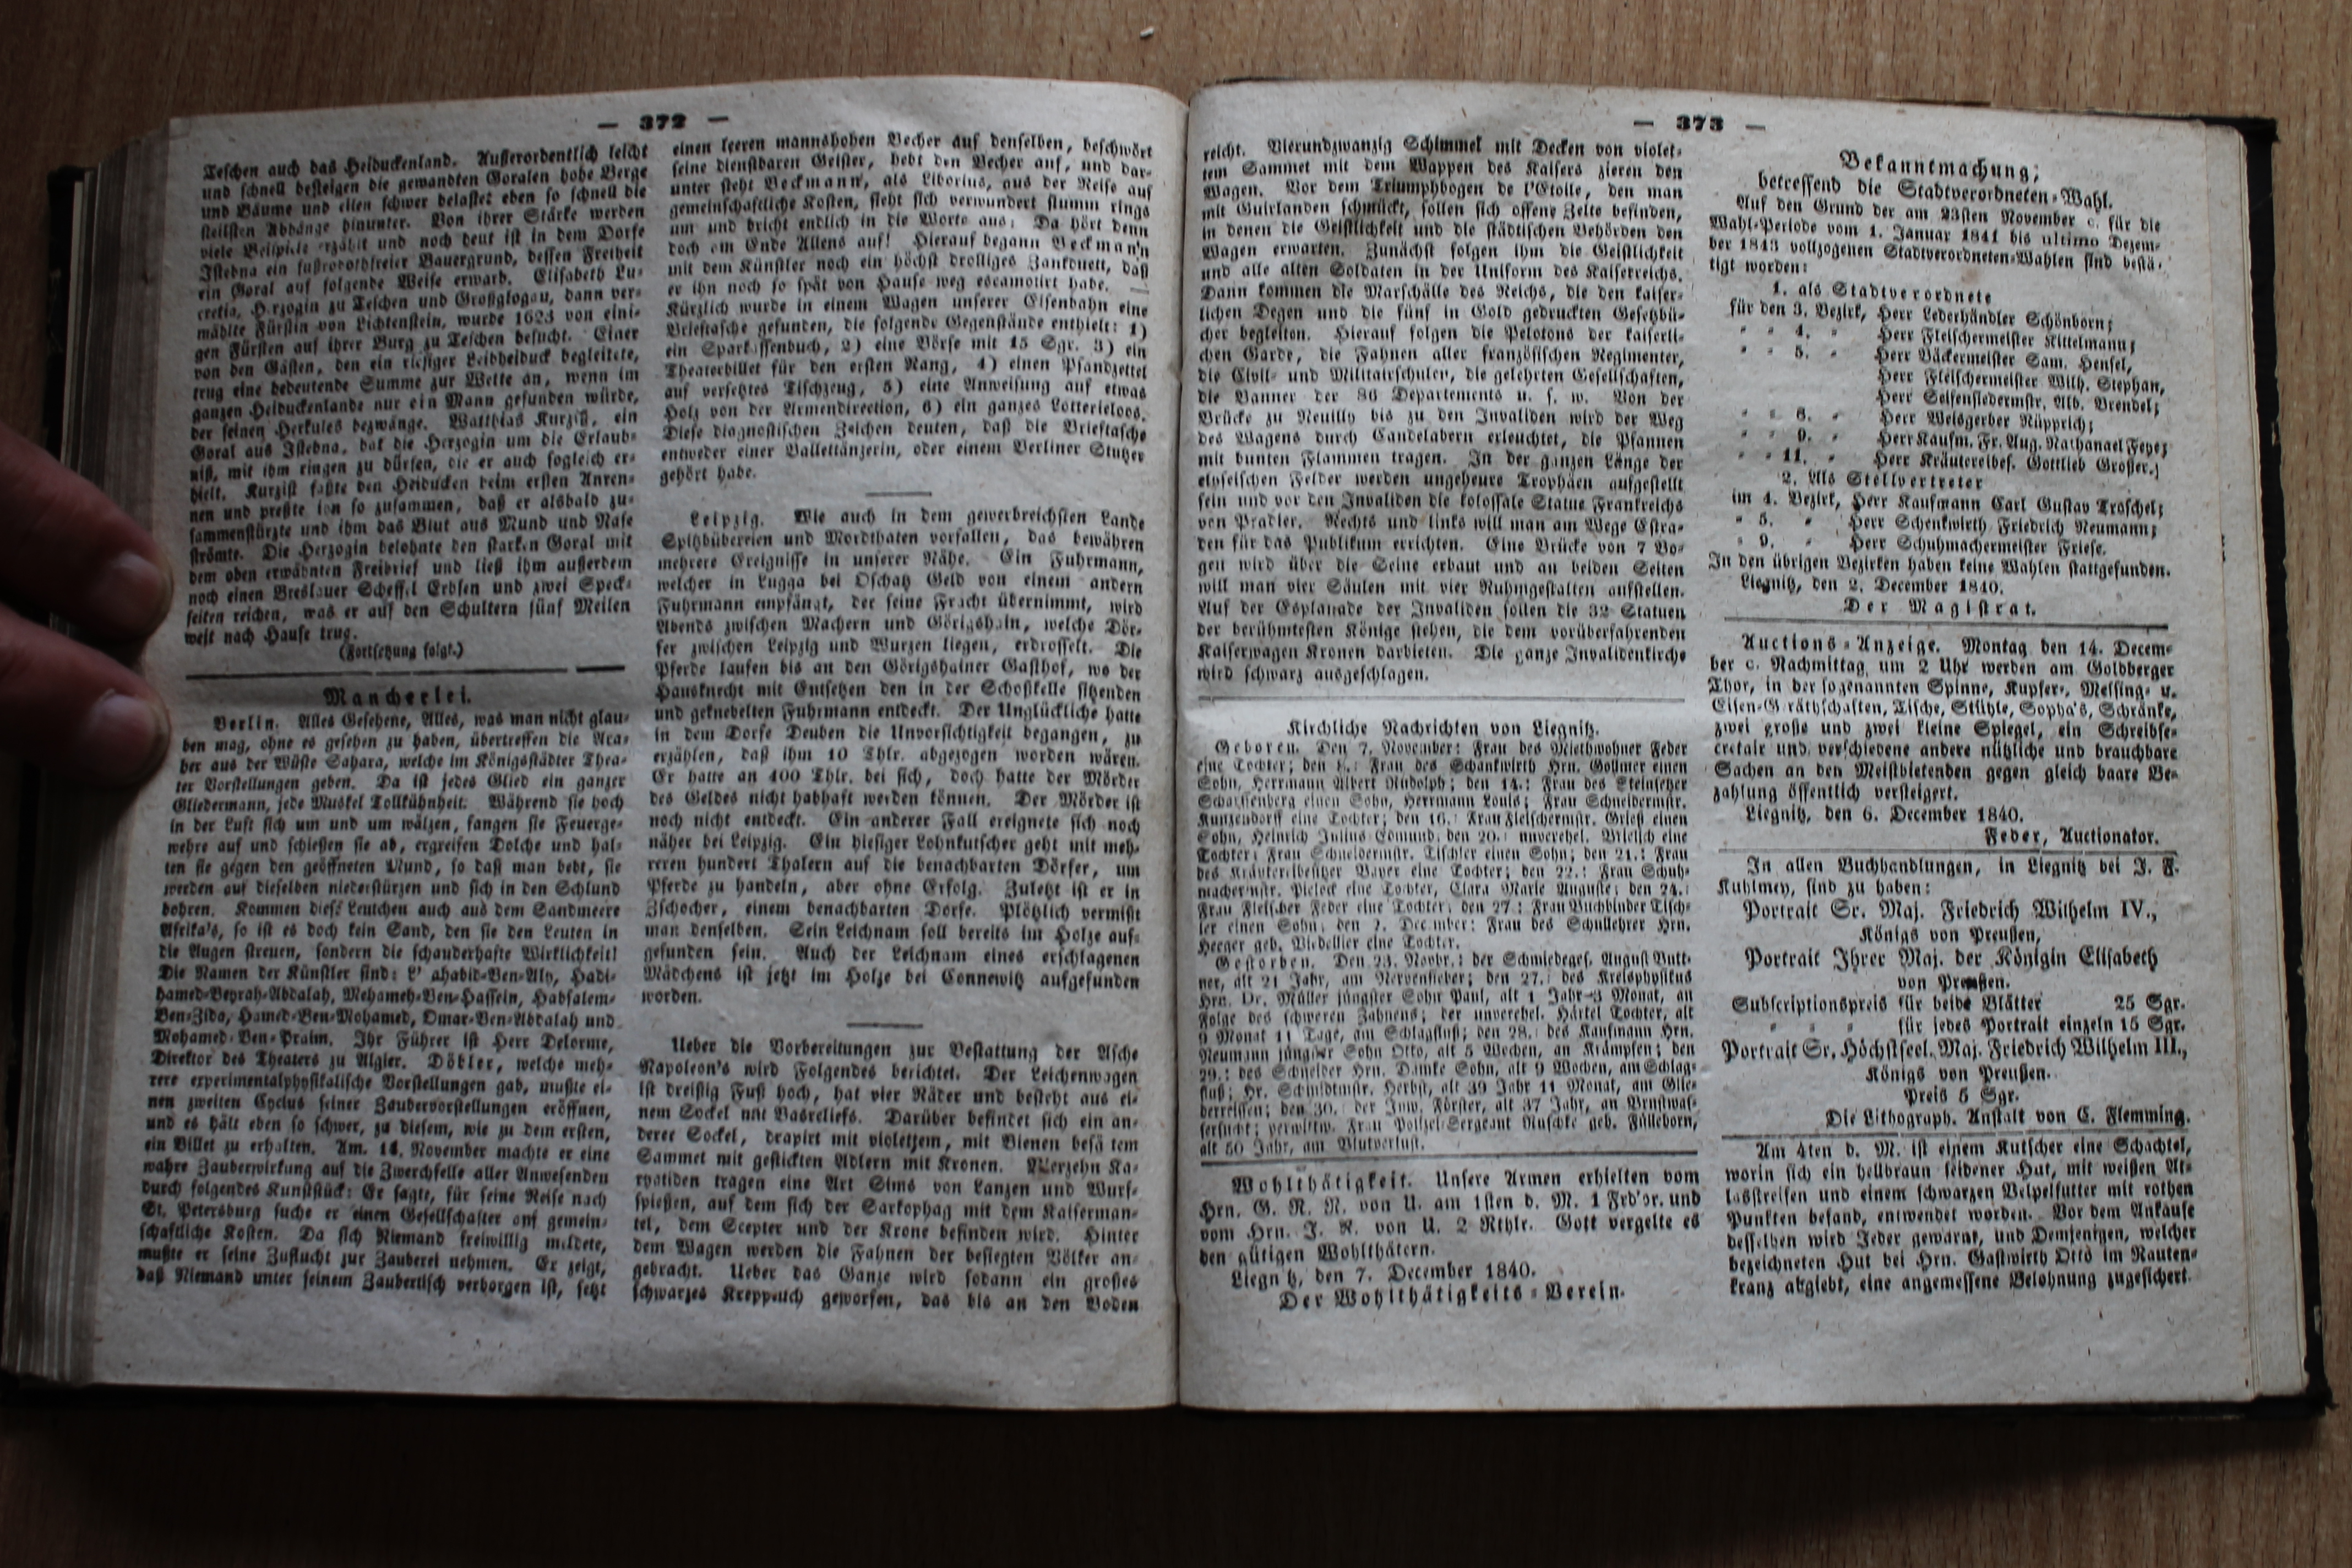 — 372 —
Teschen auch das Heiduckenland. Außerordentlich leicht
und schnell besteigen die gewandten Goralen hohe Berge
und Bäume und eilen schwer belastet eben so schnell die
steilsten Abhänge hinunter. Von ihrer Stärke werden
viele Beispiele erzählt und noch heut ist in dem Dorfe
Istebna ein fußrobothfreier Bauergrund, dessen Freiheit
ein Goral auf folgende Weise erwarb. Elisabeth Lu-
cretia, Herzogin zu Teschen und Großglogau, dann ver-
mählte Fürstin von Lichtenstein, wurde 1623 von eini-
gen Fürsten auf ihrer Burg zu Teschen besucht. Einer
von den Gästen, den ein riesiger Leibheiduck begleitete,
trug eine bedeutende Summe zur Wette an, wenn im
ganzen Heiduckenlande nur ein Mann gefunden würde,
der seinen Herkules bezwänge. Matthias Kurziß, ein
Goral aus Istebna, bat die Herzogin um die Erlaub-
niß, mit ihm ringen zu dürfen, die er auch sogleich er-
hielt. Kurziß faßte den Heiducken beim ersten Anren-
nen und preßte ihn so zusammen, daß er alsbald zu-
sammenstürzte und ihm das Blut aus Mund und Nase
strömte. Die Herzogin belohnte den starken Goral mit
dem oben erwähnten Freibrief und ließ ihm außerdem
noch einen Breslauer Scheffel Erbsen und zwei Speck-
seiten reichen, was er auf den Schultern fünf Meilen
weit nach Hause trug.
(Fortsetzung folgt.)
Mancherlei.
Berlin. Alles Gesehene, Alles, was man nicht glau-
ben mag, ohne es gesehen zu haben, übertreffen die Ara-
ber aus der Wüste Sahara, welche im Königsstädter Thea-
ter Vorstellungen geben. Da ist jedes Glied ein ganzer
Gliedermann, jede Muskel Tollkühnheit. Während sie hoch
in der Luft sich um und um wälzen, fangen sie Feuerge-
wehre auf und schießen sie ab, ergreifen Dolche und hal-
ten sie gegen den geöffneten Mund, so daß man bebt, sie
werden auf dieselben niederstürzen und sich in den Schlund
bohren. Kommen diese Leutchen auch aus dem Sandmeere
Afrika's, so ist es doch kein Sand, den sie den Leuten in
die Augen streuen, sondern die schauderhafte Wirklichkeit!
Die Namen der Künstler sind: L' ahabid-Ben-Aly, Hadi-
hamed-Beyrah-Abdalah, Mehameh-Ben-Hassein, Habsalem-
Ben-Zido, Hamed-Ben-Mohamed, Omar-Ben-Abdalah und
Mohamed-Ben-Praim. Ihr Führer ist Herr Delorme,
Direktor des Theaters zu Algier. Döbler, welche meh-
rere experimentalphysikalische Vorstellungen gab, mußte ei-
nen zweiten Cyclus seiner Zaubervorstellungen eröffnen,
und es hält eben so schwer, zu diesem, wie zu dem ersten,
ein Billet zu erhalten. Am. 14. November machte er eine
wahre Zauberwirkung auf die Zwerchfelle aller Anwesenden
durch folgendes Kunststück: Er sagte, für seine Reise nach
St. Petersburg suche er einen Gesellschafter auf gemein-
schaftliche Kosten. Da sich Niemand freiwillig meldete,
mußte er seine Zuflucht zur Zauberei nehmen. Er zeigt,
daß Niemand unter seinem Zaubertisch verborgen ist, setzt
einen leeren mannshohen Becher auf denselben, beschwört
seine dienstbaren Geister, hebt den Becher auf, und dar-
unter steht Beckmann, als Liborius, aus der Reise auf
gemeinschaftliche Kosten, sieht sich verwundert stumm rings
um und bricht endlich in die Worte aus: Da hört denn
doch am Ende Allens auf! Hierauf begann Beckmann
mit dem Künstler noch ein höchst drolliges Zankduett, daß
er ihn noch so spät von Hause weg escamotirt habe. —
Kürzlich wurde in einem Wagen unserer Eisenbahn eine
Brieftasche gefunden, die folgende Gegenstände enthielt: 1)
ein Sparkassenbuch, 2) eine Börse mit 15 Sgr. 3) ein
Theaterbillet für den ersten Rang, 4) einen Pfandzettel
auf versetztes Tischzeug, 5) eine Anweisung auf etwas
Holz von der Armendirection, 6) ein ganzes Lotterieloos.
Diese diagnostischen Zeichen deuten, daß die Brieftasche
entweder einer Ballettänzerin, oder einem Berliner Stutzer
gehört habe.
Leipzig. Wie auch in dem gewerbreichsten Lande
Spitzbübereien und Mordthaten vorfallen, das bewähren
mehrere Ereignisse in unserer Nähe. Ein Fuhrmann,
welcher in Lugga bei Oschatz Geld von einem andern
Fuhrmann empfängt, der seine Fracht übernimmt, wird
Abends zwischen Machern und Görigshain, welche Dör-
fer zwischen Leipzig und Wurzen liegen, erdrosselt. Die
Pferde laufen bis an den Görigshainer Gasthof, wo der
Hausknecht mit Entsetzen den in der Schoßkelle sitzenden
und geknebelten Fuhrmann entdeckt. Der Unglückliche hatte
in dem Dorfe Deuben die Unvorsichtigkeit begangen, zu
erzählen, daß ihm 10 Thlr. abgezogen worden wären.
Er hatte an 400 Thlr. bei sich, doch hatte der Mörder
des Geldes nicht habhaft werden können. Der Mörder ist
noch nicht entdeckt. Ein anderer Fall ereignete sich noch
näher bei Leipzig. Ein hiesiger Lohnkutscher geht mit meh-
reren hundert Thalern auf die benachbarten Dörfer, um
Pferde zu handeln, aber ohne Erfolg. Zuletzt ist er in
Zschocher, einem benachbarten Dorfe. Plötzlich vermißt
man denselben. Sein Leichnam soll bereits im Holze auf-
gefunden sein. Auch der Leichnam eines erschlagenen
Mädchens ist jetzt im Holze bei Connewitz aufgefunden
worden.
Ueber die Vorbereitungen zur Bestattung der Asche
Napoleon's wird Folgendes berichtet. Der Leichenwagen
ist dreißig Fuß hoch, hat vier Räder und besteht aus ei-
nem Sockel mit Basreliefs. Darüber befindet sich ein an-
derer Sockel, drapirt mit violettem, mit Bienen besä tem
Sammet mit gestickten Adlern mit Kronen. Vierzehn Ka-
ryatiden tragen eine Art Sims von Lanzen und Wurf-
spießen, auf dem sich der Sarkophag mit dem Kaiserman-
tel, dem Scepter und der Krone befinden wird. Hinter
dem Wagen werden die Fahnen der besiegten Völker an-
gebracht. Ueber das Ganze wird sodann ein großes
schwarzes Krepptuch geworfen, das bis an den Boden
— 373 —
reicht. Vierundzwanzig Schimmel mit Decken von violet-
tem Sammet mit dem Wappen des Kaisers zieren den
Wagen. Vor dem Triumphbogen de l'Etoile, den man
mit Guirlanden schmückt, sollen sich offene Zelte befinden,
in denen die Geistlichkeit und die städtischen Behörden den
Wagen erwarten. Zunächst folgen ihm die Geistlichkeit
und alle alten Soldaten in der Uniform des Kaiserreichs.
Dann kommen die Marschälle des Reichs, die den kaiser-
lichen Degen und die fünf in Gold gedruckten Gesetzbü-
cher begleiten. Hierauf folgen die Pelotons der kaiserli-
chen Garde, die Fahnen aller französischen Regimenter,
die Civil- und Militairschulen, die gelehrten Gesellschaften,
die Banner der 86 Departements u. s. w. Von der
Brücke zu Neuilly bis zu den Invaliden wird der Weg
des Wagens durch Candelabern erleuchtet, die Pfannen
mit bunten Flammen tragen. In der ganzen Länge der
elyseischen Felder werden ungeheure Trophäen aufgestellt
sein und vor den Invaliden die kolossale Statue Frankreichs
von Pradier. Rechts und links will man am Wege Estra-
den für das Publikum errichten. Eine Brücke von 7 Bo-
gen wird über die Seine erbaut und an beiden Seiten
will man vier Säulen mit vier Ruhmgestalten aufstellen.
Auf der Esplanade der Invaliden sollen die 32 Statuen
der berühmtesten Könige stehen, die dem vorüberfahrenden
Kaiserwagen Kronen darbieten. Die ganze Invalidenkirche
wird schwarz ausgeschlagen.
Kirchliche Nachrichten von Liegnitz.
Geboren. Den 7. November: Frau des Miethwohner Feder
eine Tochter; den 8.: Frau des Schankwirth Hrn. Gollmer einen
Sohn, Herrmann Albert Rudolph; den 14.: Frau des Steinsetzer
Scharffenberg einen Sohn, Herrmann Louis; Frau Schneidermstr.
Kunzendorff eine Tochter; den 16.: Frau Fleischermstr. Grieß einen
Sohn, Heinrich Julius Edmund. den 20.: unverehel. Mielsch eine
Tochter; Frau Schneidermstr. Tischler einen Sohn; den 21.: Frau
des Kräutereibesitzer Bayer eine Tochter; den 22.: Frau Schuh-
machermstr. Pieleck eine Tochter, Clara Marie Auguste; den 24.:
Frau Fleischer Feder eine Tochter; den 27.: Frau Buchbinder Tisch-
ler einen Sohn; den 2. December: Frau des Schullehrer Hrn.
Heeger geb. Biedellier eine Tochter.
Gestorben. Den 23. Novbr.: der Schmiedeges. August Butt-
ner, alt 21 Jahr, am Nervenfieber; den 27.: des Kreisphysikus
Hrn. Dr. Müller jüngster Sohn Paul, alt 1 Jahr 3 Monat, an
Folge des schweren Zahnens; der unverehel. Härtel Tochter, alt
9 Monat 11 Tage, am Schlagfluß; den 28.: des Kaufmann Hrn.
Neumann jüngster Sohn Otto, alt 5 Wochen, an Krämpfen; den
29.: des Schneider Hrn. Damke Sohn, alt 9 Wochen, am Schlag-
fluß; Hr. Schmidtmstr. Herbst, alt 39 Jahr 11 Monat, am Glie-
derreissen; den 30.: der Inw. Förster, alt 37 Jahr, an Brustwas-
sersucht; verwittw. Frau Polizei-Sergeant Ruschke geb. Fülleborn,
alt 50 Jahr, am Blutverlust.
Wohlthätigkeit. Unsere Armen erhielten vom
Hrn. G. R. N. von U. am 1sten d. M. 1 Frd'or. und
vom Hrn. J. R. von U. 2 Rthlr. Gott vergelte es
den gütigen Wohlthätern.
Liegnitz, den 7. December 1840.
Der Wohlthätigkeits-Verein.
Bekanntmachung,
betreffend die Stadtverordneten-Wahl.
Auf den Grund der am 23sten November c. für die
Wahl-Periode vom 1. Januar 1841 bis ultimo Dezem-
ber 1843 vollzogenen Stadtverordneten-Wahlen sind bestä-
tigt worden:
1. als Stadtverordnete
für den 3. Bezirk, Herr Lederhändler Schönborn;
" " 4. " Herr Fleischermeister Kittelmann;
" " 5. " Herr Bäckermeister Sam. Hensel,
Herr Fleischermeister Wilh. Stephan,
Herr Seifensiedermstr. Alb. Brendel;
" " 6. " Herr Weisgerber Rüpprich;
" " 9. " Herr Kaufm. Fr. Aug. Nathanael Feye;
" " 11. " Herr Kräutereibes. Gottlieb Großer.;
2. Als Stellvertreter
im 4. Bezirk, Herr Kaufmann Carl Gustav Troschel;
" 5. " Herr Schenkwirth Friedrich Neumann;
" 9. " Herr Schuhmachermeister Friese.
In den übrigen Bezirken haben keine Wahlen stattgefunden.
Liegnitz, den 2. December 1840.
Der Magistrat.
Auctions-Anzeige. Montag den 14. Decem-
ber c. Nachmittag um 2 Uhr werden am Goldberger
Thor, in der sogenannten Spinne, Kupfer-, Messing- u.
Eisen-Geräthschaften, Tische, Stühle, Sopha's, Schränke,
zwei große und zwei kleine Spiegel, ein Schreibse-
cretair und verschiedene andere nützliche und brauchbare
Sachen an den Meistbietenden gegen gleich baare Be-
zahlung öffentlich versteigert.
Liegnitz, den 6. December 1840.
Feder, Auctionator.
In allen Buchhandlungen, in Liegnitz bei J. F.
Kuhlmey, sind zu haben:
Portrait Sr. Maj. Friedrich Wilhelm IV.,
Königs von Preußen,
Portrait Ihrer Maj. der Königin Elisabeth
von Preußen.
Subscriptionspreis für beide Blätter 25 Sgr.
" " " für jedes Portrait einzeln 15 Sgr.
Portrait Sr. Höchstseel. Maj. Friedrich Wilhelm III.,
Königs von Preußen.
Preis 5 Sgr.
Die Lithograph. Anstalt von C. Flemming.
Am 4ten d. M. ist einem Kutscher eine Schachtel,
worin sich ein hellbraun seidener Hut, mit weißen At-
lasstreifen und einem schwarzen Velpelfutter mit rothen
Punkten befand, entwendet worden. Vor dem Ankaufe
desselben wird Jeder gewarnt, und Demjenigen, welcher
bezeichneten Hut bei Hrn. Gastwirth Otto im Rauten-
kranz abgiebt, eine angemessene Belohnung zugesichert.